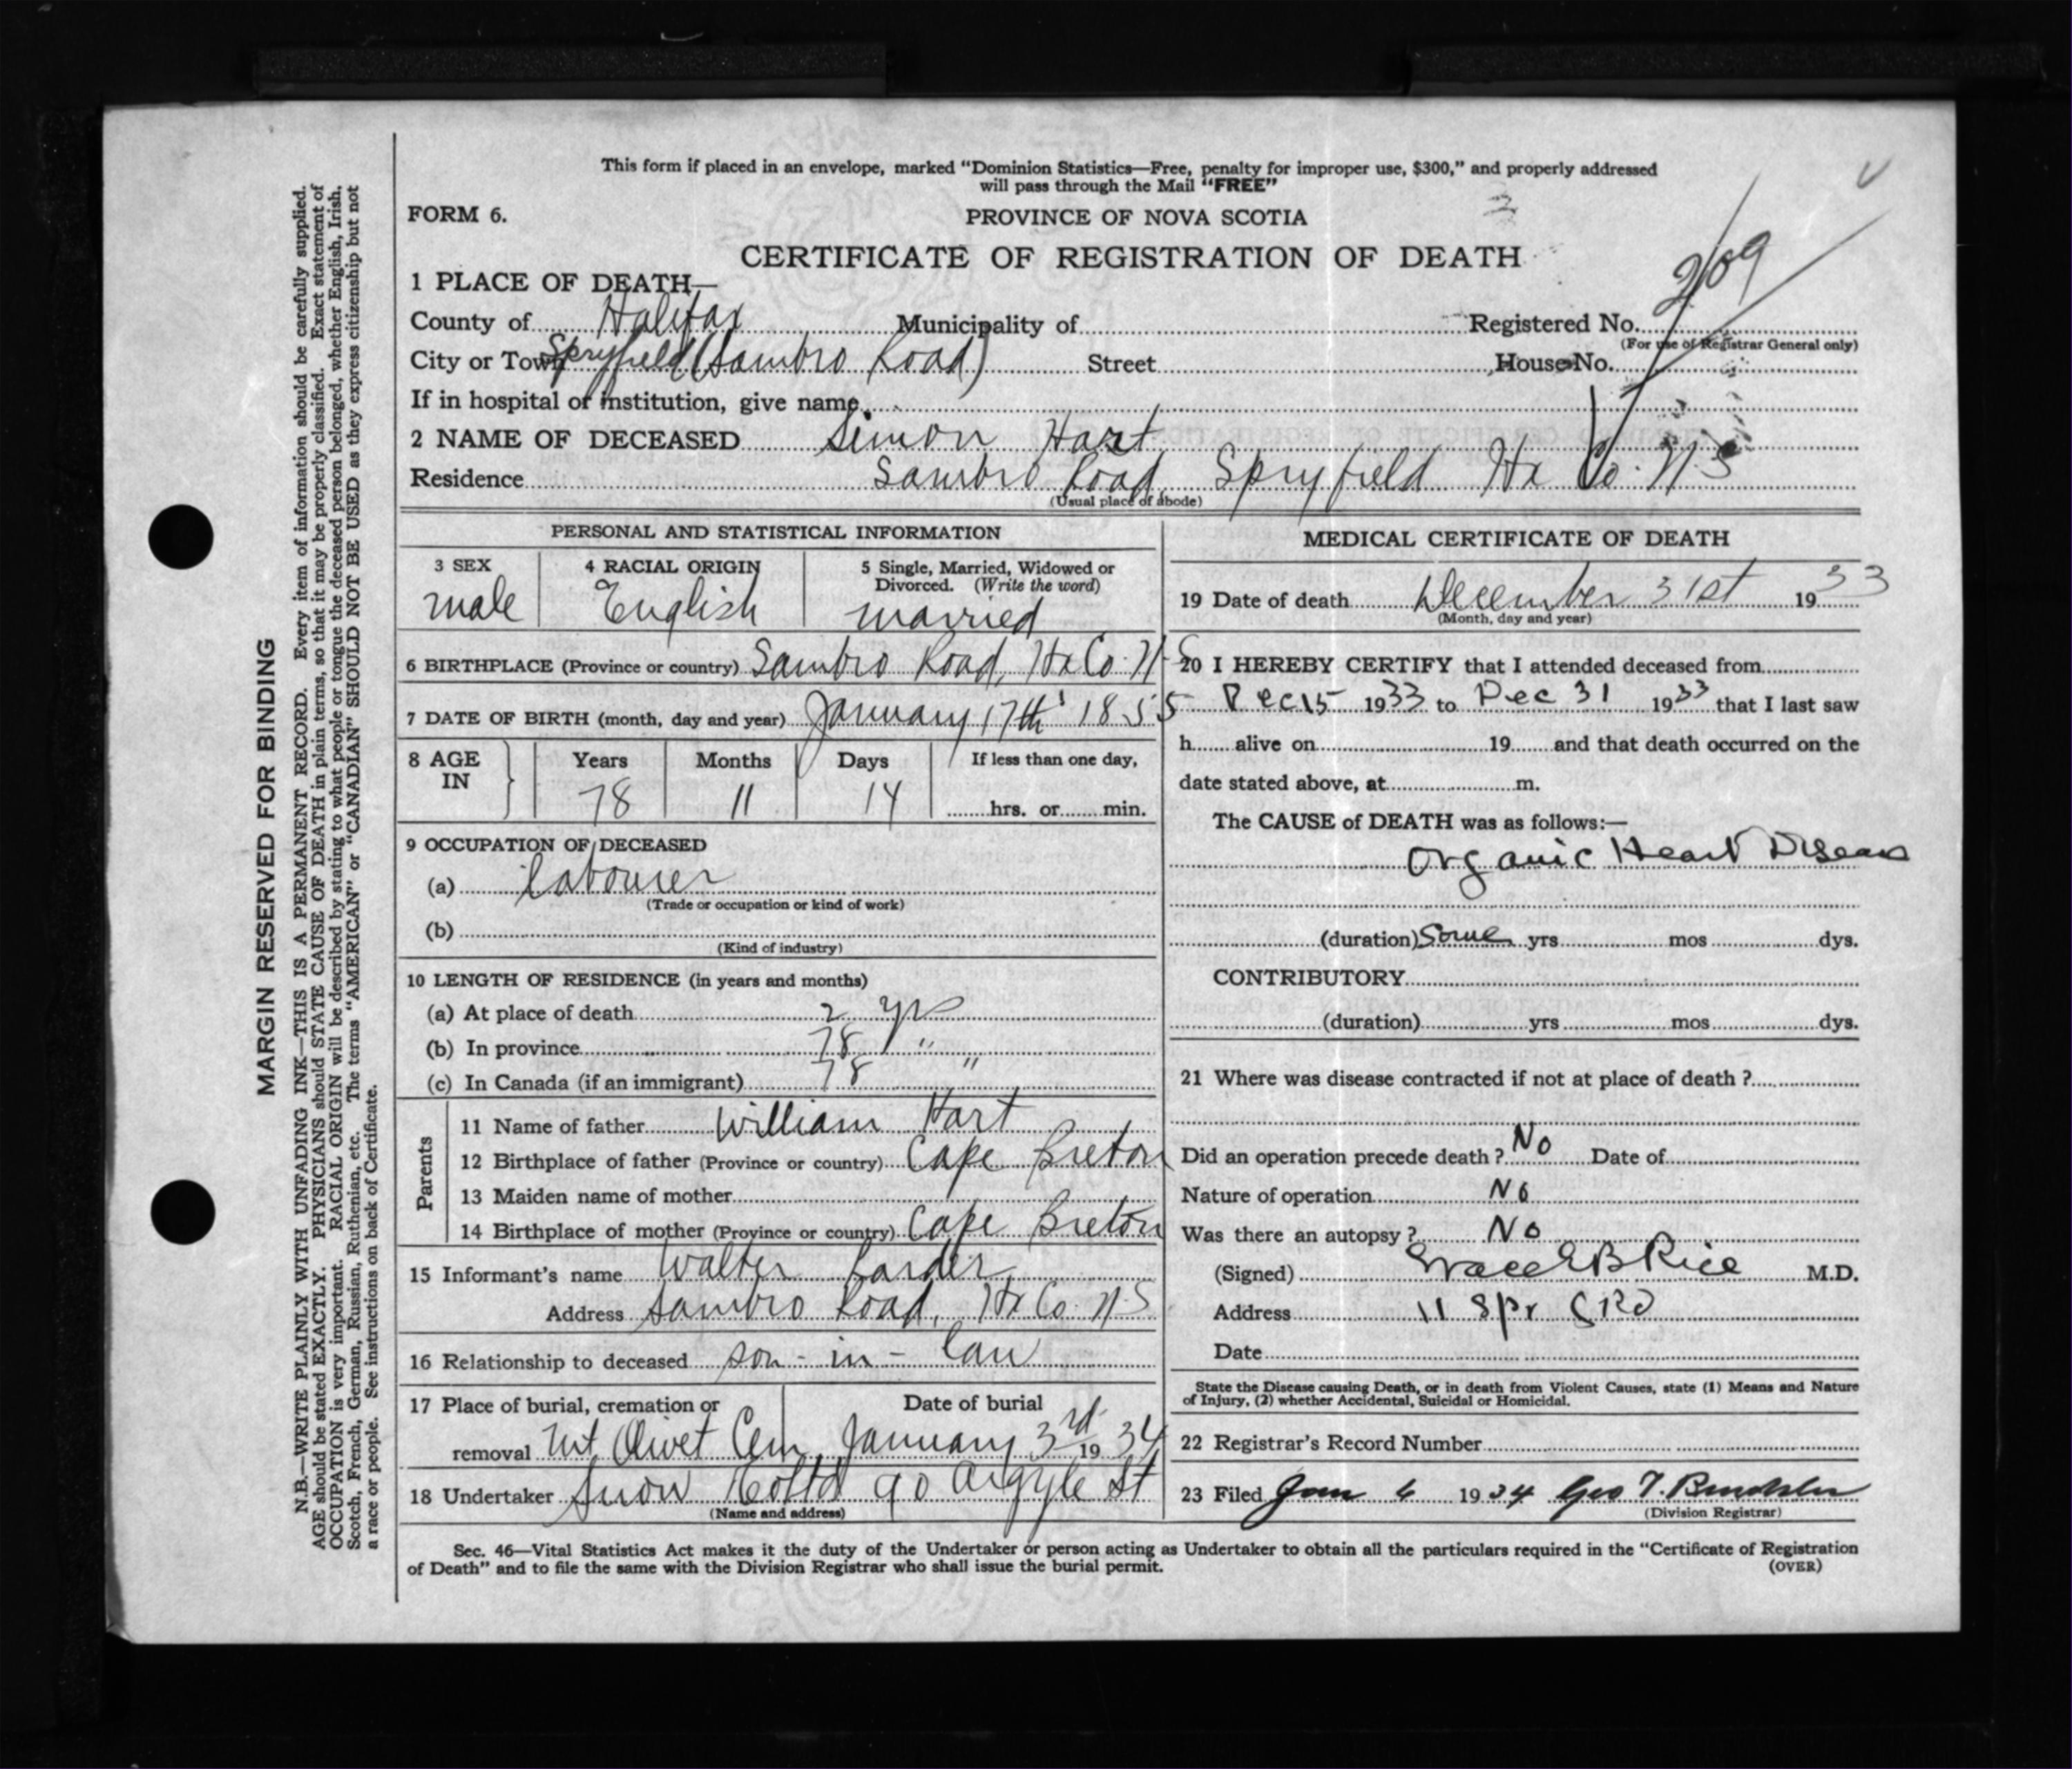 This form if placed in an envelope, marked "Dominion Statistics—Free, penalty for improper use, $300," and properly addressed
will pass through the Mail "FREE"
FORM 6.
PROVINCE OF NOVA SCOTIA
CERTIFICATE OF REGISTRATION OF DEATH
209
1 PLACE OF DEATH—
County of Halifax Municipality of Registered No.
(For use of Registrar General only)
City or Town Spryfield (Sambro Road) Street House No.
If in hospital or institution, give name
2 NAME OF DECEASED Simon Hart
Residence Sambro Road, Spryfield Hx Co. N.S
(Usual place of abode)
PERSONAL AND STATISTICAL INFORMATION
3 SEX 4 RACIAL ORIGIN 5 Single, Married, Widowed or
Divorced. (Write the word)
male English married
6 BIRTHPLACE (Province or country) Sambro Road, Hx Co. N-S
7 DATE OF BIRTH (month, day and year) January 17th 1855
8 AGE IN Years Months Days If less than one day,
78 11 14 hrs. or min.
9 OCCUPATION OF DECEASED
(a) labourer
(Trade or occupation or kind of work)
(b)
(Kind of industry)
10 LENGTH OF RESIDENCE (in years and months)
(a) At place of death 2 yrs
(b) In province 78 "
(c) In Canada (if an immigrant) 78 "
Parents
11 Name of father William Hart
12 Birthplace of father (Province or country) Cape Breton
13 Maiden name of mother
14 Birthplace of mother (Province or country) Cape Breton
15 Informant's name Walter Larder
Address Sambro Road, Hx Co. N-S
16 Relationship to deceased son-in-law
17 Place of burial, cremation or Date of burial
removal Mt. Olivet Cem. January 3rd 1934
18 Undertaker Snow & Co Ltd 90 Argyle St
(Name and address)
MEDICAL CERTIFICATE OF DEATH
19 Date of death December 31st 1933
(Month, day and year)
20 I HEREBY CERTIFY that I attended deceased from
Dec 15 1933 to Dec 31 1933 that I last saw
h alive on 19 and that death occurred on the
date stated above, at m.
The CAUSE of DEATH was as follows:—
Organic Heart Disease
(duration) Some yrs mos dys.
CONTRIBUTORY
(duration) yrs mos dys.
21 Where was disease contracted if not at place of death ?
Did an operation precede death ? No Date of
Nature of operation No
Was there an autopsy ? No
(Signed) Grace E B Rice M.D.
Address 11 Spr G Rd
Date
State the Disease causing Death, or in death from Violent Causes, state (1) Means and Nature
of Injury, (2) whether Accidental, Suicidal or Homicidal.
22 Registrar's Record Number
23 Filed Jan 6 1934 Geo T.
(Division Registrar)
Sec. 46—Vital Statistics Act makes it the duty of the Undertaker or person acting as Undertaker to obtain all the particulars required in the "Certificate of Registration
of Death" and to file the same with the Division Registrar who shall issue the burial permit.
(OVER)
MARGIN RESERVED FOR BINDING
N.B.—WRITE PLAINLY WITH UNFADING INK—THIS IS A PERMANENT RECORD. Every item of information should be carefully supplied.
AGE should be stated EXACTLY. PHYSICIANS should STATE CAUSE OF DEATH in plain terms, so that it may be properly classified. Exact statement of
OCCUPATION is very important. RACIAL ORIGIN will be described by stating to what people or tongue the deceased person belonged, whether English, Irish,
Scotch, French, German, Russian, Ruthenian, etc. The terms "AMERICAN" or "CANADIAN" SHOULD NOT BE USED as they express citizenship but not
a race or people. See instructions on back of Certificate.